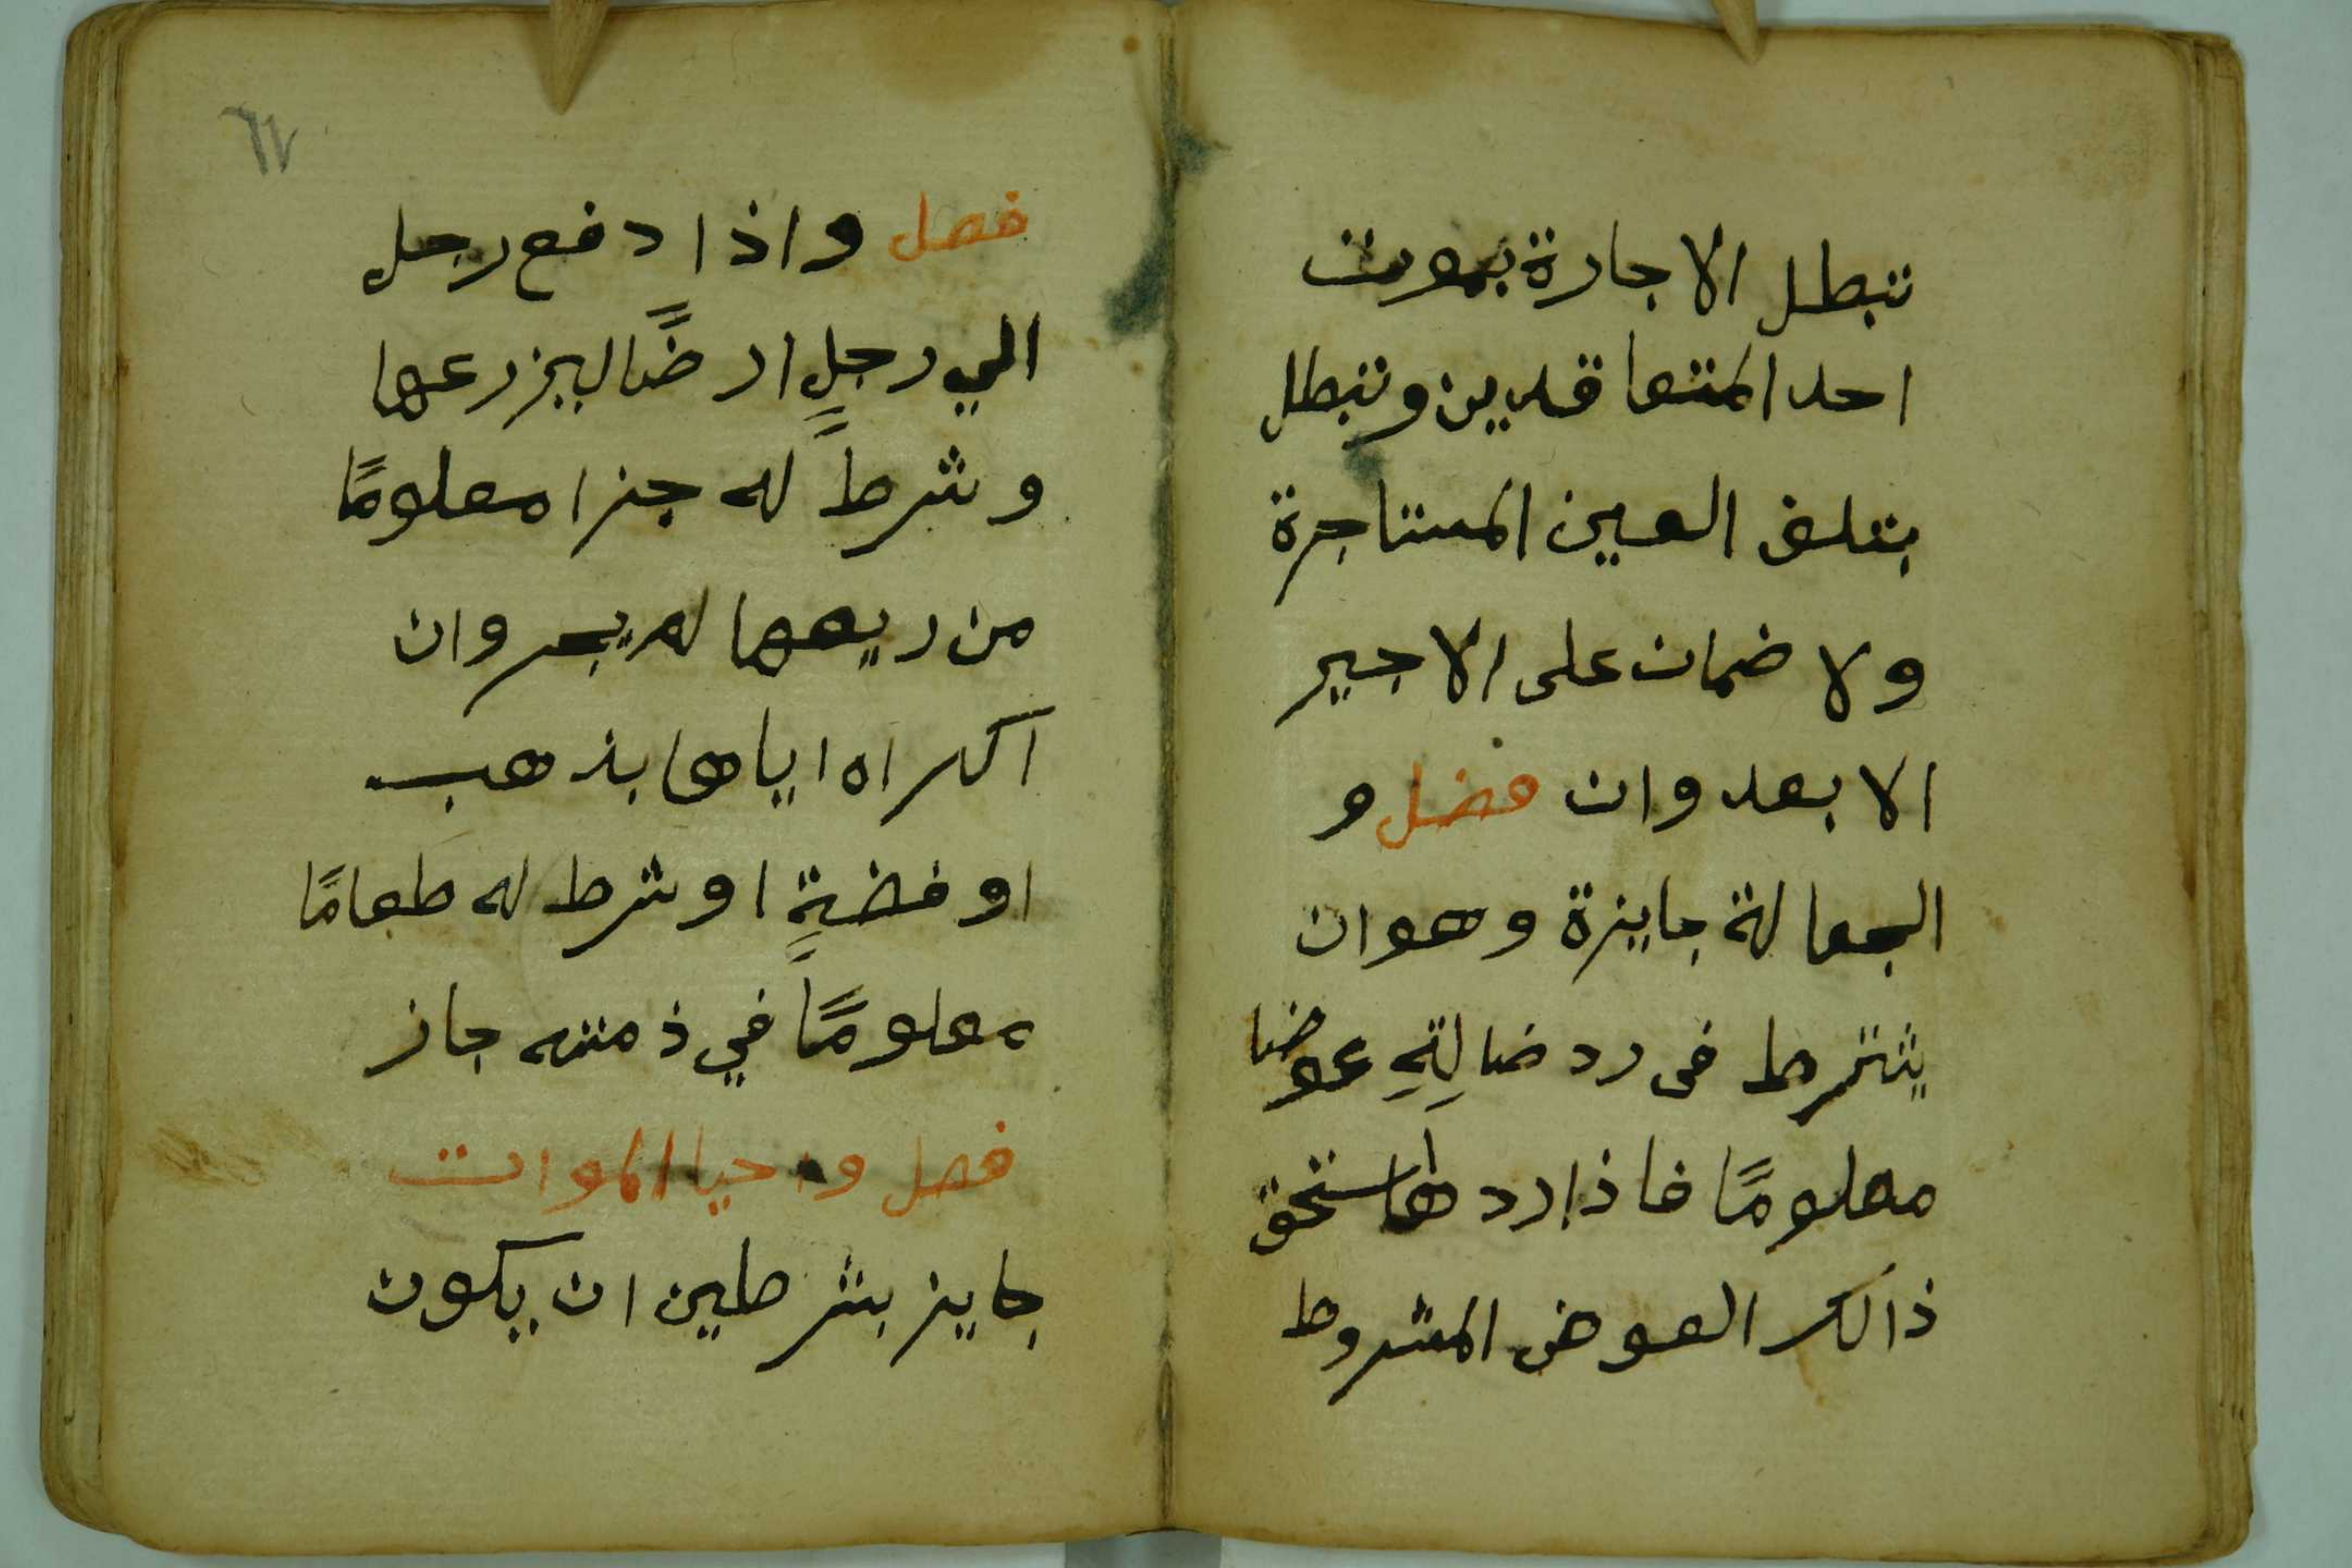 تبطل الاجارة بموت
احد المتعاقدين وتبطل
بتلف العين المستاجرة
ولا ضمان على الاجير
الا بعدوان فضل و
الجعالة جايزة وهو ان
يشترط فى رد ضالتِهِ عوضا
معلومًا فاذا رد ها ستحق
ذالك العوض المشروط
٦٧
فصل واذا دفع رجل
الي رجلٍ ارضًا ليزرعها
وشرطَ له جزا معلومًا
من ريعها لم يجز وان
اكراه اياها بذهب
او فضةٍ او شرط له طعامًا
معلومًا في ذمته جاز
فصل واحيا الموات
جايز بشرطين ان يكون